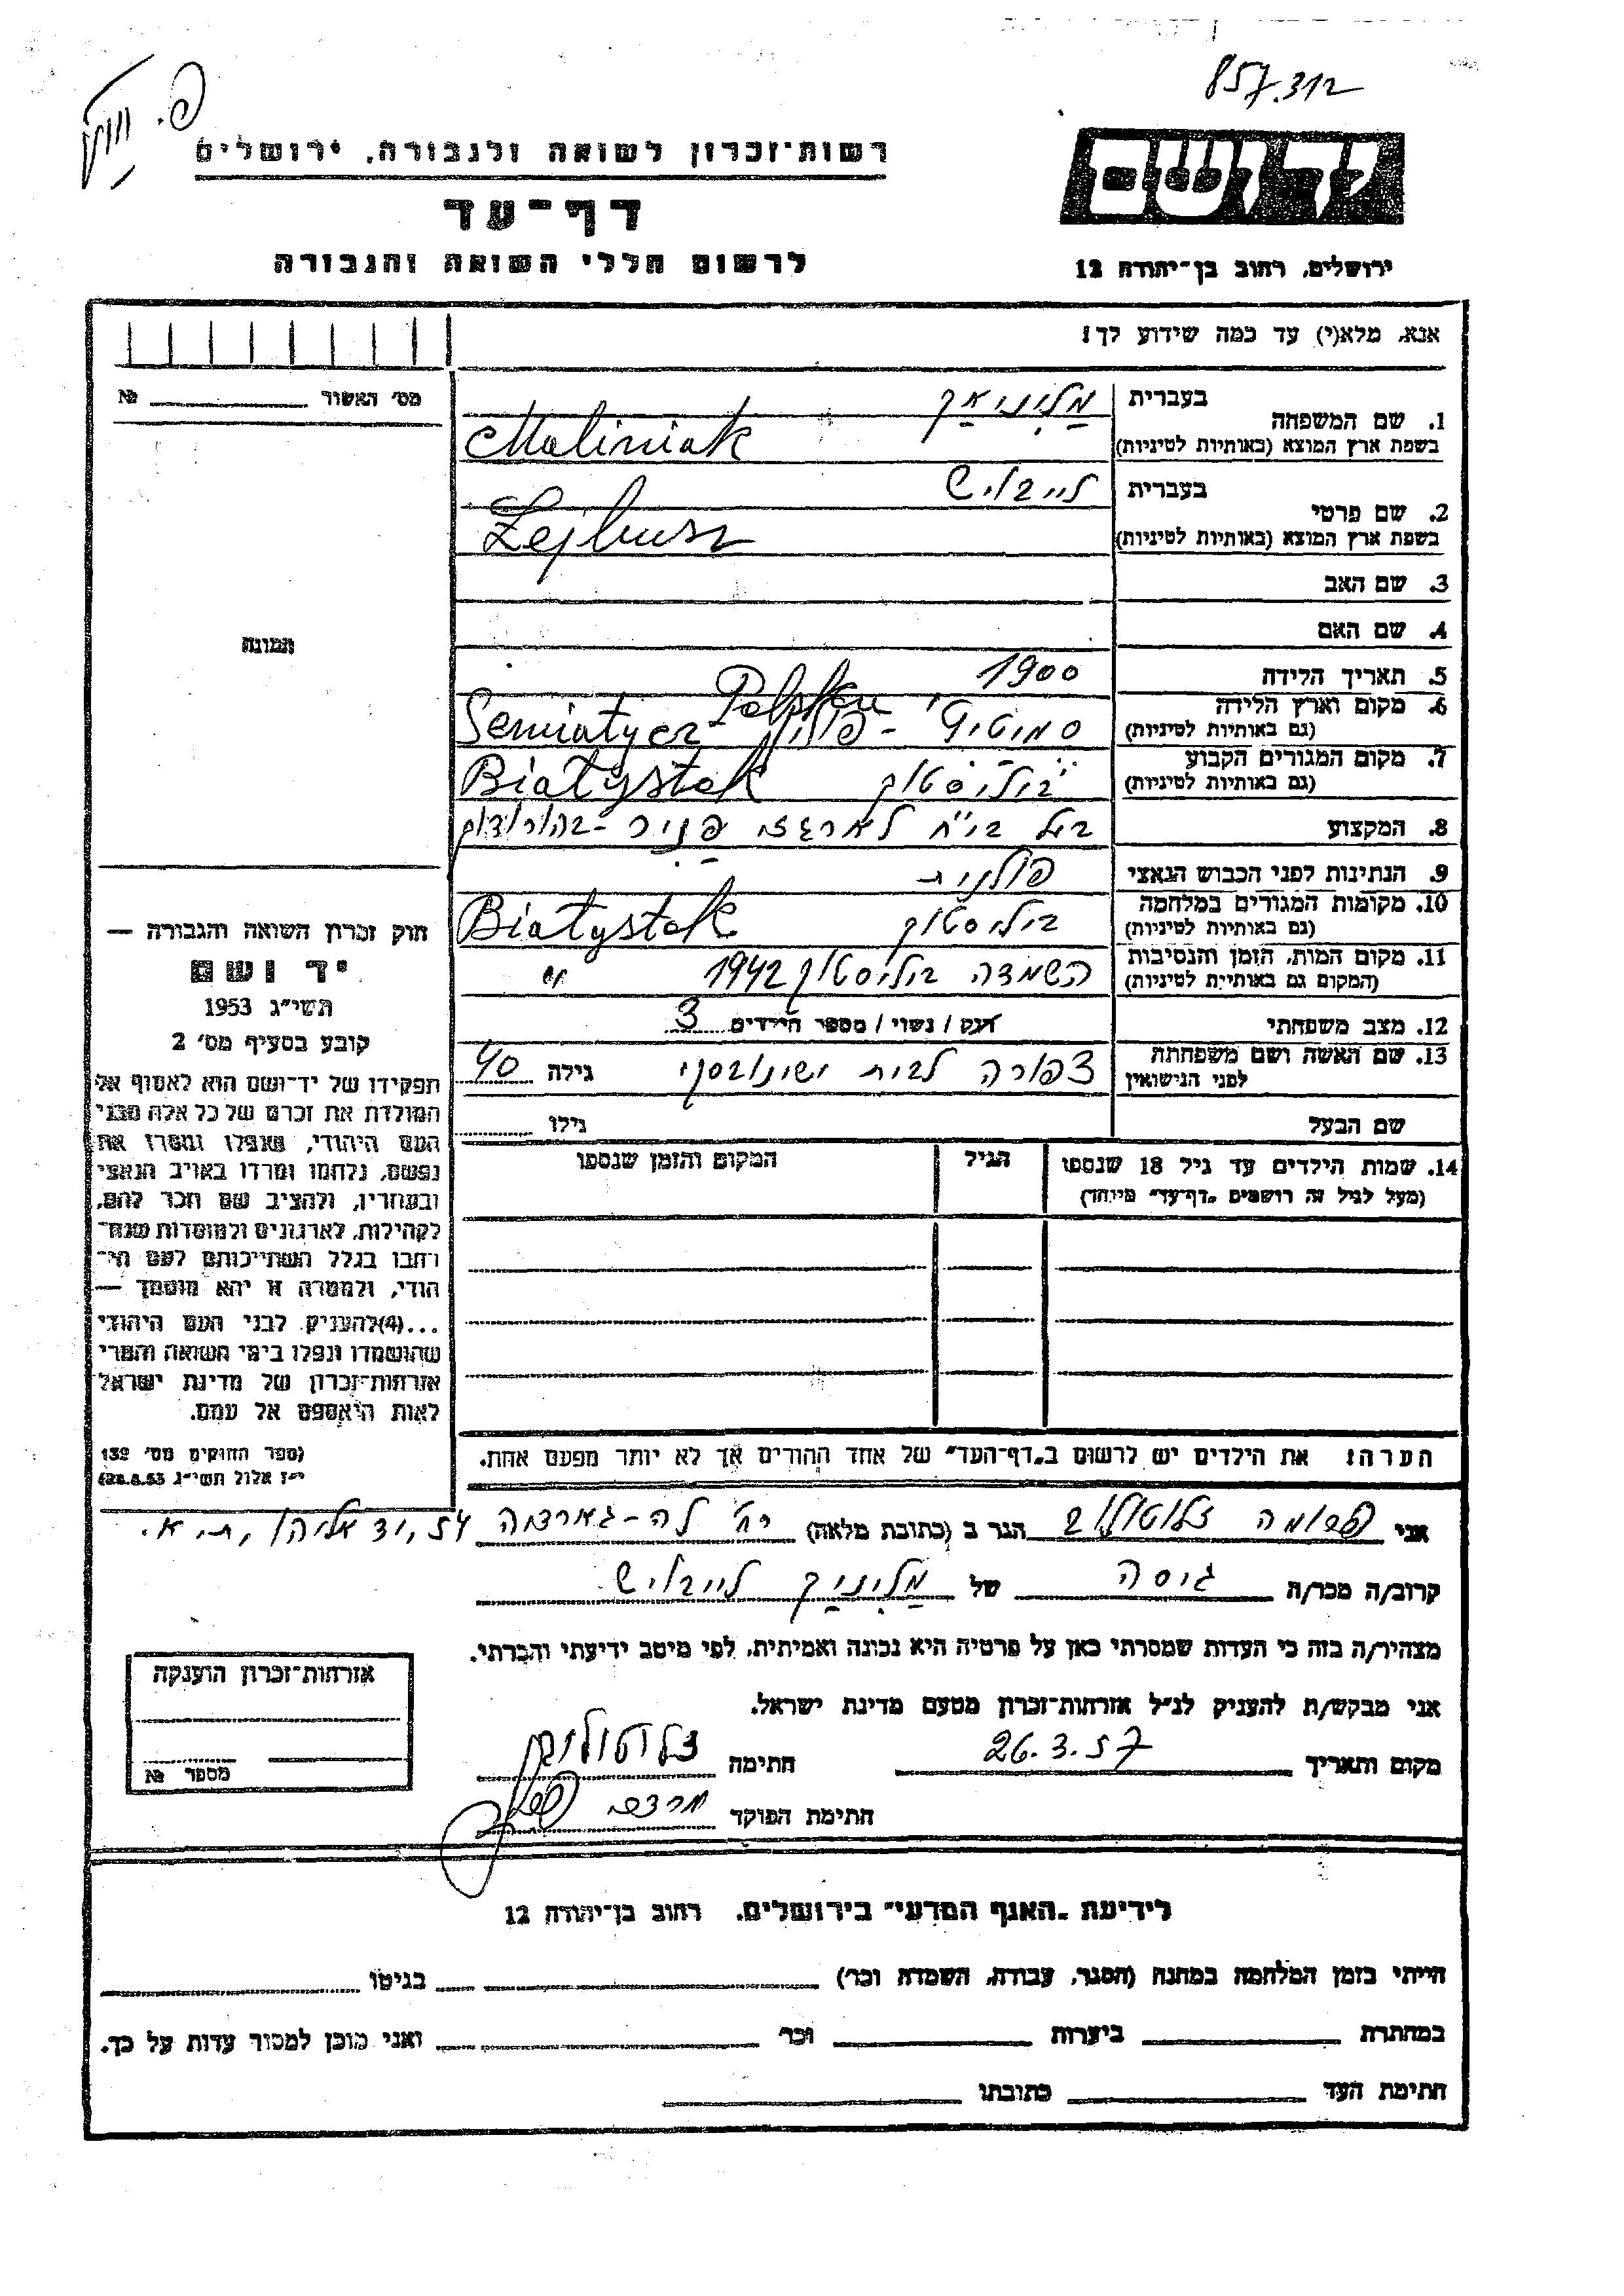 857.312
פ. חוץ
רשות־זכרון לשואה ולגבורה, ירושלים
יד ושם
דף־עד
לרשום חללי השואה והגבורה
ירושלים, רחוב בן־יהודה 12
אנא, מלא(י) עד כמה שידוע לך!
מס׳ האשור № 
1. שם המשפחה בעברית מַלִינִיאַק
בשפת ארץ המוצא (באותיות לטיניות) Maliniak
2. שם פרטי בעברית לייבוש
בשפת ארץ המוצא (באותיות לטיניות) Lejbusz
3. שם האב
4. שם האם
תמונה
5. תאריך הלידה 1900
6. מקום וארץ הלידה (גם באותיות לטיניות) סמיטיץ' - פולין Semiatycz - Polska
7. מקום המגורים הקבוע (גם באותיות לטיניות) ביליסטוק Białystok
8. המקצוע בעל בי"ח לארגזי
9. הנתינות לפני הכבוש הנאצי פולנית
10. מקומות המגורים במלחמה (גם באותיות לטיניות) ביליסטוק Białystok
11. מקום המות, הזמן והנסיבות (המקום גם באותיות לטיניות) השמדה ביליסטוק 1942
12. מצב משפחתי רווק / נשוי / מספר הילדים 3
13. שם האשה ושם משפחתה לפני הנישואין צפורה לבית ישינובסקי גילה 40
שם הבעל גילו
14. שמות הילדים עד גיל 18 שנספו
(מעל לגיל זה רושמים „דף־עד״ מיוחד)
הגיל
המקום והזמן שנספו
הערה: את הילדים יש לרשום ב„דף־העד״ של אחד ההורים אך לא יותר מפעם אחת.
חוק זכרון השואה והגבורה —
יד ושם
תשי״ג 1953
קובע בסעיף מס׳ 2
תפקידו של יד־ושם הוא לאסוף אל
המולדת את זכרם של כל אלה מבני
העם היהודי, שנפלו ומסרו את
נפשם, נלחמו ומרדו באויב הנאצי
ובעוזריו, ולהציב שם וזכר להם,
לקהילות, לארגונים ולמוסדות שנח־
רבו בגלל השתייכותם לעם הי־
הודי, ולמטרה זו יהא מוסמך —
...(4)להעניק לבני העם היהודי
שהושמדו ונפלו בימי השואה והמרי
אזרחות־זכרון של מדינת ישראל
לאות היאספם אל עמם.
(ספר החוקים מס׳ 132
י״ז אלול תשי״ג 28.8.53)
אני פרומה צלוטולוב הגר ב (כתובת מלאה) רח' לה-גוארדיה 54, יד אליהו, ת.א.
קרוב/ה מכר/ה גיסה של מַלִינִיַק לייבוש
מצהיר/ה בזה כי העדות שמסרתי כאן על פרטיה היא נכונה ואמיתית, לפי מיטב ידיעתי והכרתי.
אני מבקש/ת להעניק לנ״ל אזרחות־זכרון מטעם מדינת ישראל.
מקום ותאריך 26.3.57 חתימה
חתימת הפוקד
אזרחות־זכרון הוענקה
מספר №
לידיעת „האגף המדעי״ בירושלים, רחוב בן־יהודה 12
הייתי בזמן המלחמה במחנה (הסגר, עבודה, השמדה וכו׳) בגיטו
במחתרת ביערות וכו׳ ואני מוכן למסור עדות על כך.
חתימת העד כתובתו